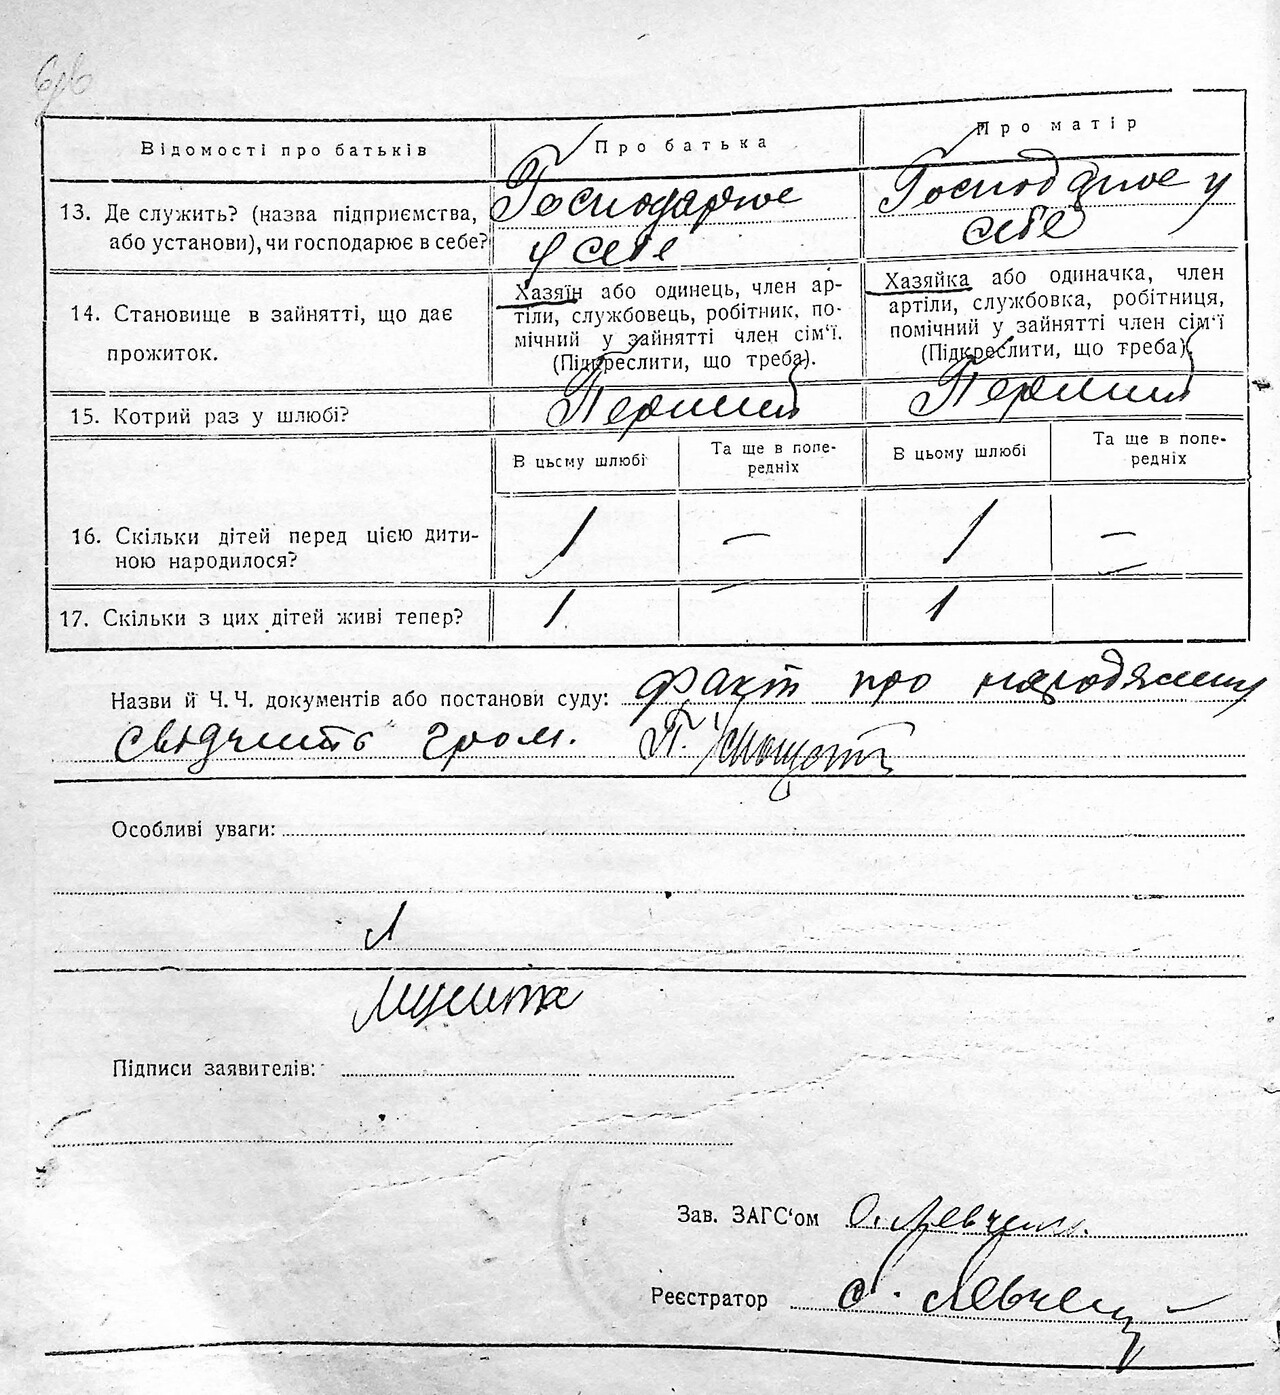 Відомості про батьків
Про батька
Про матір
13. Де служить? (назва підприємства,
або установи), чи господарює в себе?
Господарює
у себе
Господарює у
себе
14. Становище в зайнятті, що дає
прожиток.
Хазяїн або одинець, член ар-
тілі, службовець, робітник, по-
мічний у зайнятті член сім'ї.
(Підкреслити, що треба).
Хазяйка або одиначка, член
артіли, службовка, робітниця,
помічний у зайнятті член сім'ї
(Підкреслити, що треба).
15. Котрий раз у шлюбі?
Перший
Перший
В цьому шлюбі
Та ще в попе-
редніх
В цьому шлюбі
Та ще в попе-
редніх
16. Скільки дітей перед цією дити-
ною народилося?
1
—
1
—
17. Скільки з цих дітей живі тепер?
1
1
Назви й Ч. Ч. документів або постанови суду: Факт про народження
свідчить гром. П.
Особливі уваги:
Підписи заявителів:
Зав. ЗАГС'ом О. Левчен
Реєстратор О. Левчен